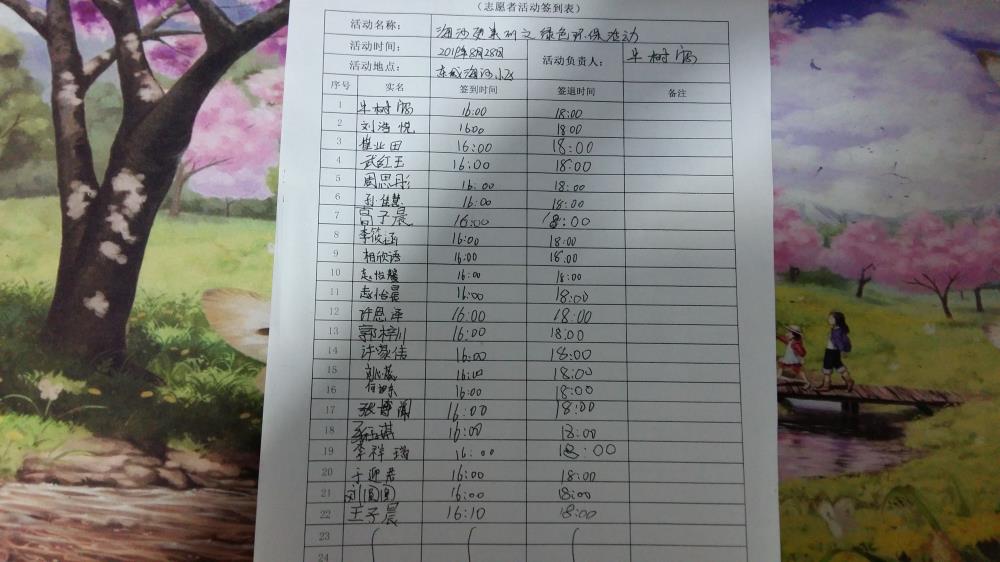 （志愿者活动签到表）
活动名称： 之绿色环保活动
活动时间： 2018年8月28日 活动负责人： 牛树
活动地点： 小区
序号 实名 签到时间 签退时间 备注
1 牛树 16:00 18:00
2 刘浩悦 1600 1800
3 崔业田 16:00 18:00
4 武红王 16:00 18:00
5 周思彤 16:00 18:00
6 孙佳慧 16:00 18:00
7 高子晨 16:00 18:00
8 李筱涵 16:00 18:00
9 相欣语 16:00 18:00
10 孟怡馨 16:00 18:00
11 孟怡晨 16:00 18:00
12 许恩泽 16:00 18:00
13 郭梓川 16:00 18:00
14 许家信 16:00 18:00
15 16:00 18:00
16 16:00 18:00
17 张博闻 16:00 18:00
18 16:00 18:00
19 李祥瑞 16:00 18:00
20 于迎君 16:00 18:00
21 刘圆圆 16:00 18:00
22 王子晨 16:10 18:00
23
24